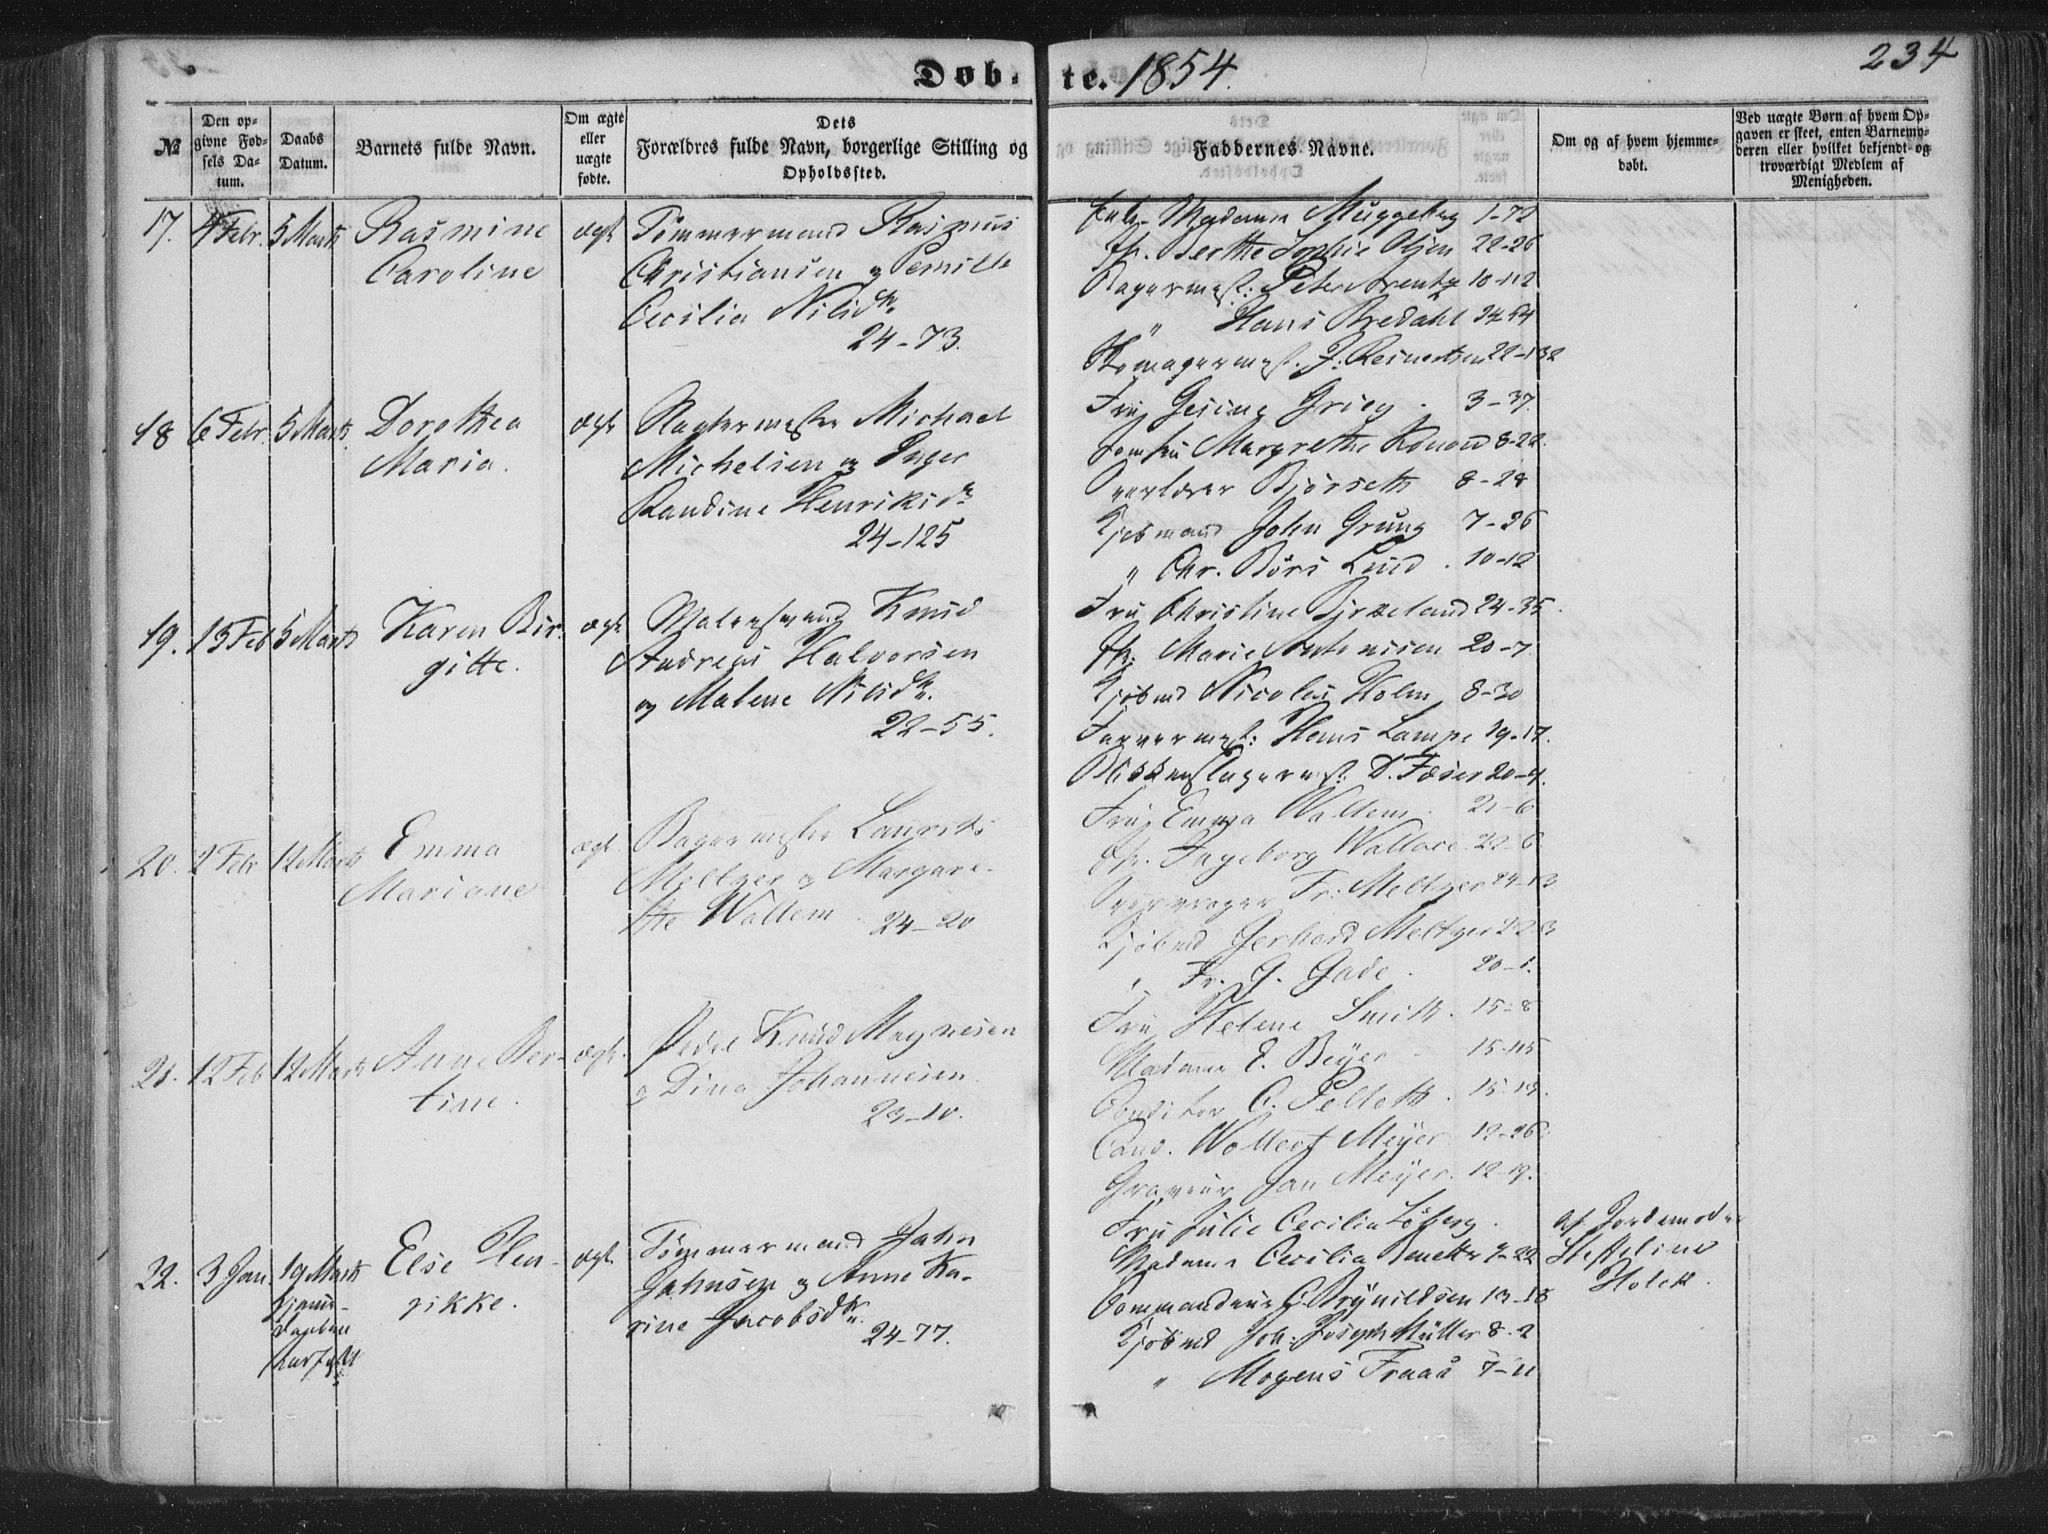 Døb-te. 1854.
234
№
Den opgivne Fødsels Datum.
Daabs Datum.
Barnets fulde Navn.
Om ægte eller uægte fødte.
Dets Forældres fulde Navn, borgerlige Stilling og Opholdssted.
Faddernes Navne.
Om og af hvem hjemmedøbt.
Ved uægte Børn af hvem Opgaven er skeet, enten Barnemoderen eller hvilket bekjendt og troværdigt Medlem af Menigheden.
17. 4 Febr. 5 Marts Rasmine ægt Tømmermand Rasmus
Caroline Christiansen og Pernille
Cecilia Nilsdtr.
24-73.
Madame Muggeberg 1-72
Berthe Sophie Olsen 22-26
Bagermest: Peter Arentz 10-112
" Hans Bredahl 24
Skomagermest. J. Reinertsen 22-132
18 6 Febr. 5 Marts Dorothea ægt Michael
Maria. Michelsen og Inger
Randine Henriksdr
24-125
Fru Gesine Grieg. 3-37.
Jomfru Margrethe Konow 8-22.
Overlærer Bjørseth 8-28
Kjøbmand John Grung 7-26
" Chr. Børs Lund. 10-12
19. 15 Feb 5 Marts Karen Bir- ægt Knud
gitte. Andreas Halvorsen
og Malene Nilsdtr.
22-55.
Fru Christine Birkeland 24-35.
Marie 20-7
Kjøbmd Nicolai Holm 8-30
Farvermest: Hans Lampe 19-17.
Blikkenslagermest: D. Fæser 20-4.
20. 2 Febr 12 Marts Emma ægt. Bagermester Laurits
Mariane Meltzer og Margare-
the Wallem. 24-20
Fru Emma Wallem. 21-6
Ingeborg Wallace. 22-6
Fr: Meltzer 24-13
Kjøbmd Gerhard Meltzer 22-3
" Fr. G. Gade. 20-1.
21. 12 Feb 12 Marts Anne Ber- ægt. Pedel Knud Magnesen
tine. og Dina Johannesen.
23-10.
Fru Helene Smith. 15-8
Madame E. Beyer 15-115
Conditor C. Pelloth. 15-19.
Cand. Wollert Meyer. 12-26.
Graveur Jan Meyer. 12-19.
22. 3 Jan. 19 Marts Else Hen- ægt. Tømmermand John
hjemme- rikke. Johnsen og Anne Ka-
rine Jacobsdtr.
24-77.
Fru Julie Cecilia Løberg.
Madame Cecilia 7-22
C. Brynildsen 13-18
Kjøbmd Joh. Joseph Müller 8-2
" Mogens Fraas 7-11
af Jordemoder
Steffeline
Holck.